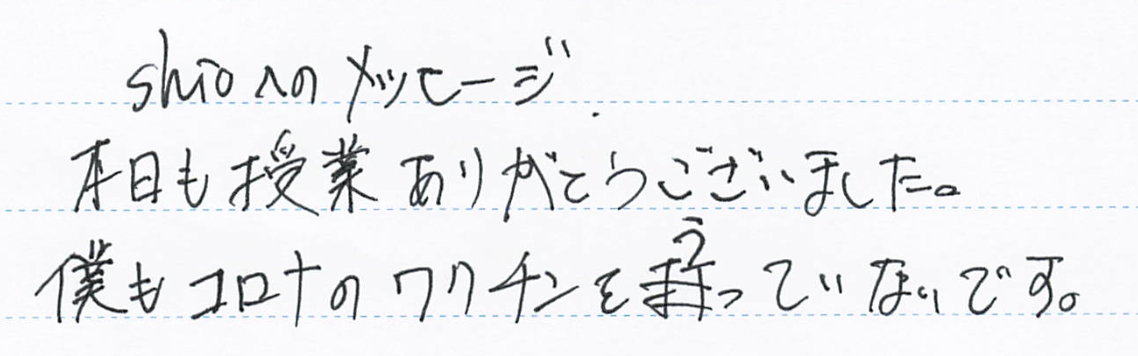 shioへのメッセージ
本日も授業ありがとうございました。
僕もコロナのワクチンをうっていないです。